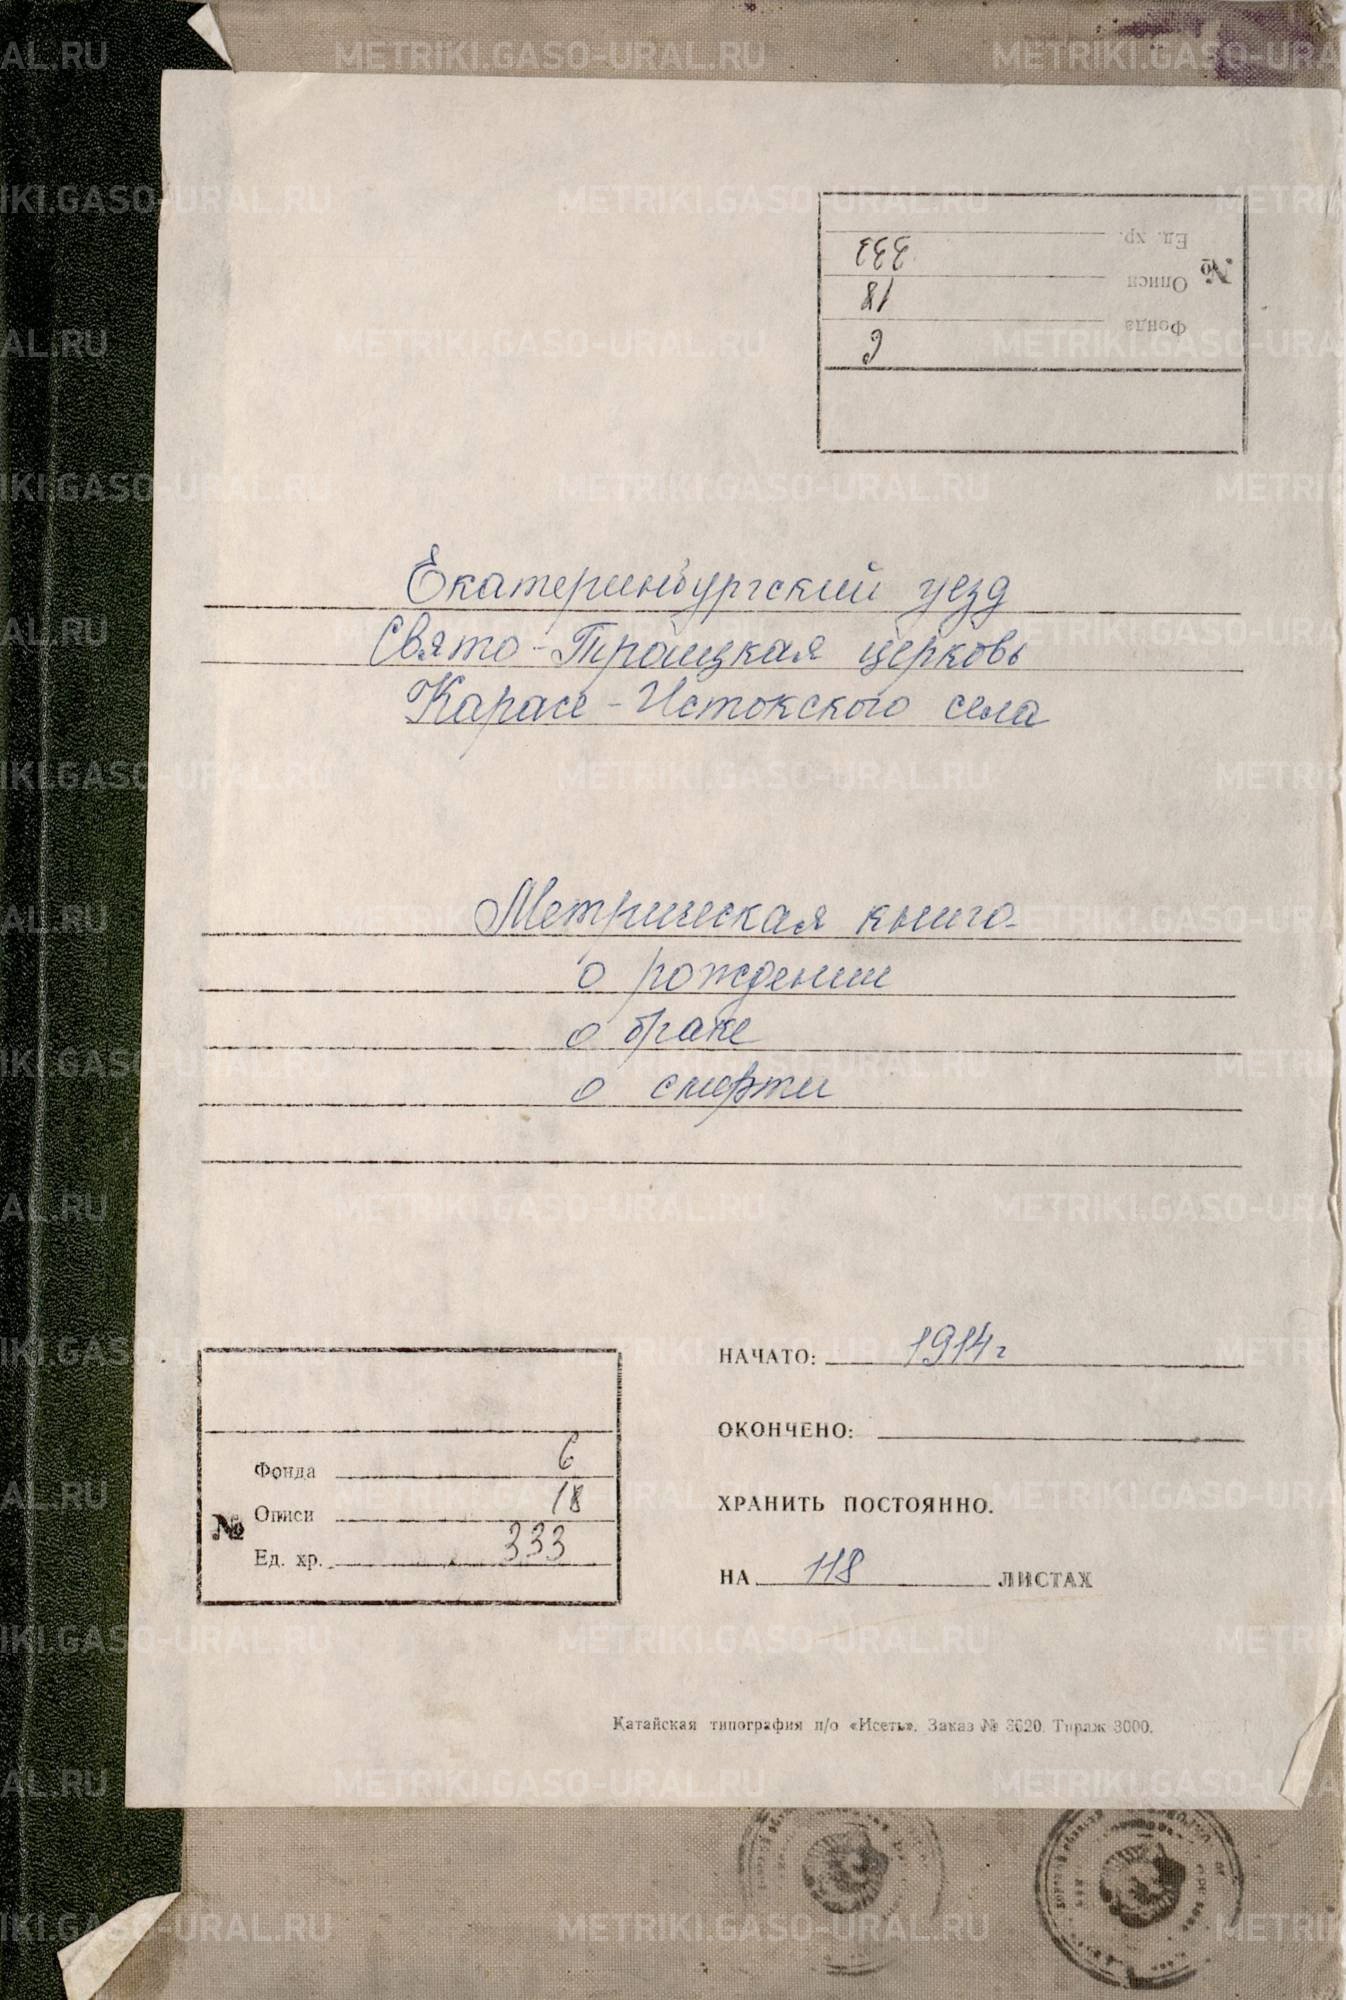 №
Фонда 6
Описи 18
Ед. хр. 333
Екатеринбургский уезд
Свято-Троицкая церковь
Карасе-Истокского села
Метрическая книга
о рождении
о браке
о смерти
НАЧАТО: 1914 г
ОКОНЧЕНО:
ХРАНИТЬ ПОСТОЯННО.
НА 118 ЛИСТАХ
№
Фонда 6
Описи 18
Ед. хр. 333
Катайская типография п/о «Исеть». Заказ № 3620. Тираж 3000.
METRIKI.GASO-URAL.RU